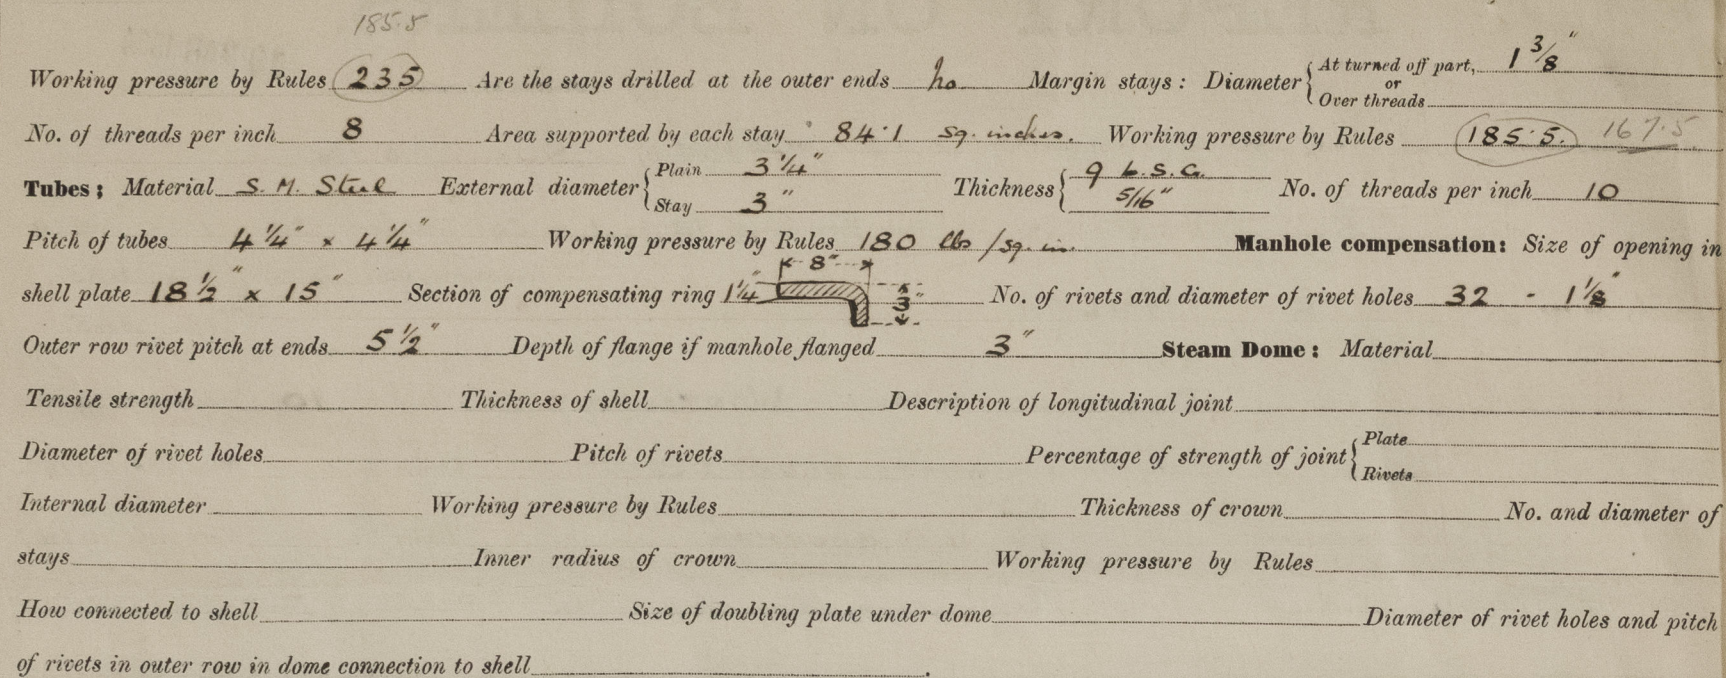 185.5
Working pressure by Rules 235 Are the stays drilled at the outer ends no Margin stays: Diameter { At turned off part, 1 3/8"
or
Over threads
No. of threads per inch 8 Area supported by each stay 84.1 sq. inches. Working pressure by Rules 185.5. 167.5
Tubes; Material S. M. Steel External diameter { Plain 3 1/4" Thickness { 9 L.S.G. No. of threads per inch 10
Stay 3" 5/16"
Pitch of tubes 4 1/4" x 4 1/4" Working pressure by Rules 180 lbs/sq. in. Manhole compensation: Size of opening in
8"
shell plate 18 1/2" x 15" Section of compensating ring 1 1/4" 3" No. of rivets and diameter of rivet holes 32 - 1 1/8"
Outer row rivet pitch at ends 5 1/2" Depth of flange if manhole flanged 3" Steam Dome: Material
Tensile strength Thickness of shell Description of longitudinal joint
Diameter of rivet holes Pitch of rivets Percentage of strength of joint { Plate
Rivets
Internal diameter Working pressure by Rules Thickness of crown No. and diameter of
stays Inner radius of crown Working pressure by Rules
How connected to shell Size of doubling plate under dome Diameter of rivet holes and pitch
of rivets in outer row in dome connection to shell .